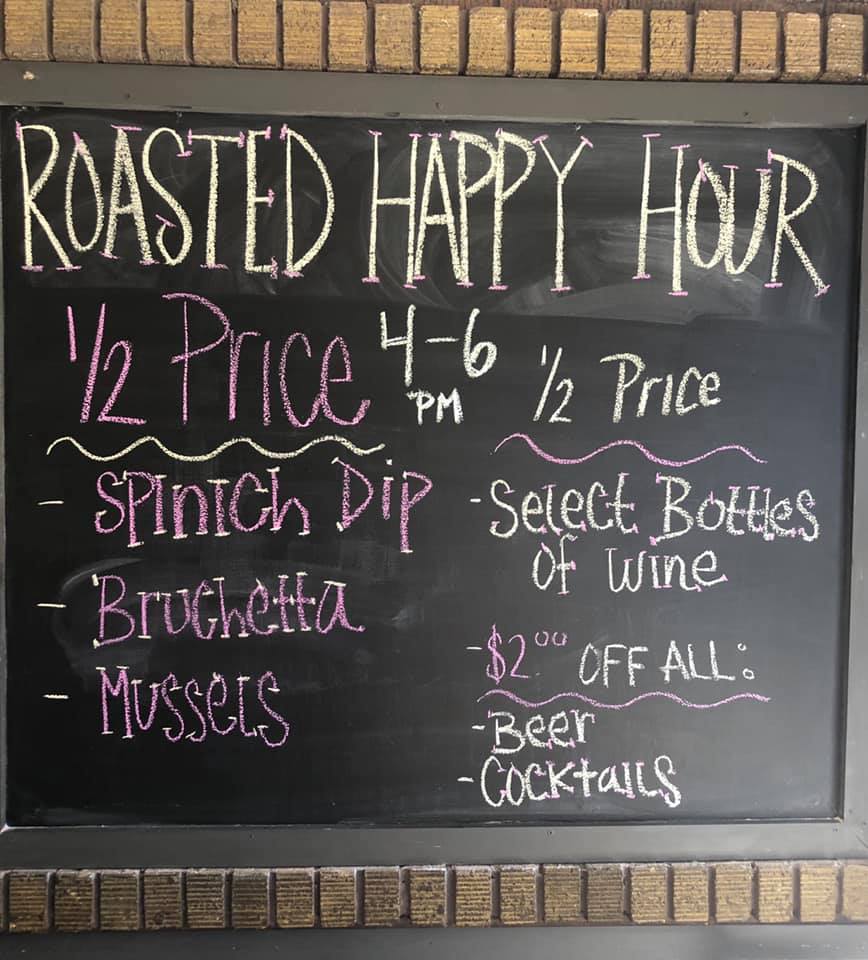 ROASTED HAPPY HOUR
1/2 Price
4-6
PM
- Spinich Dip
- Bruchetta
- Mussels
1/2 Price
- Select Bottles
of Wine
- $2.00 OFF ALL:
- Beer
- Cocktails